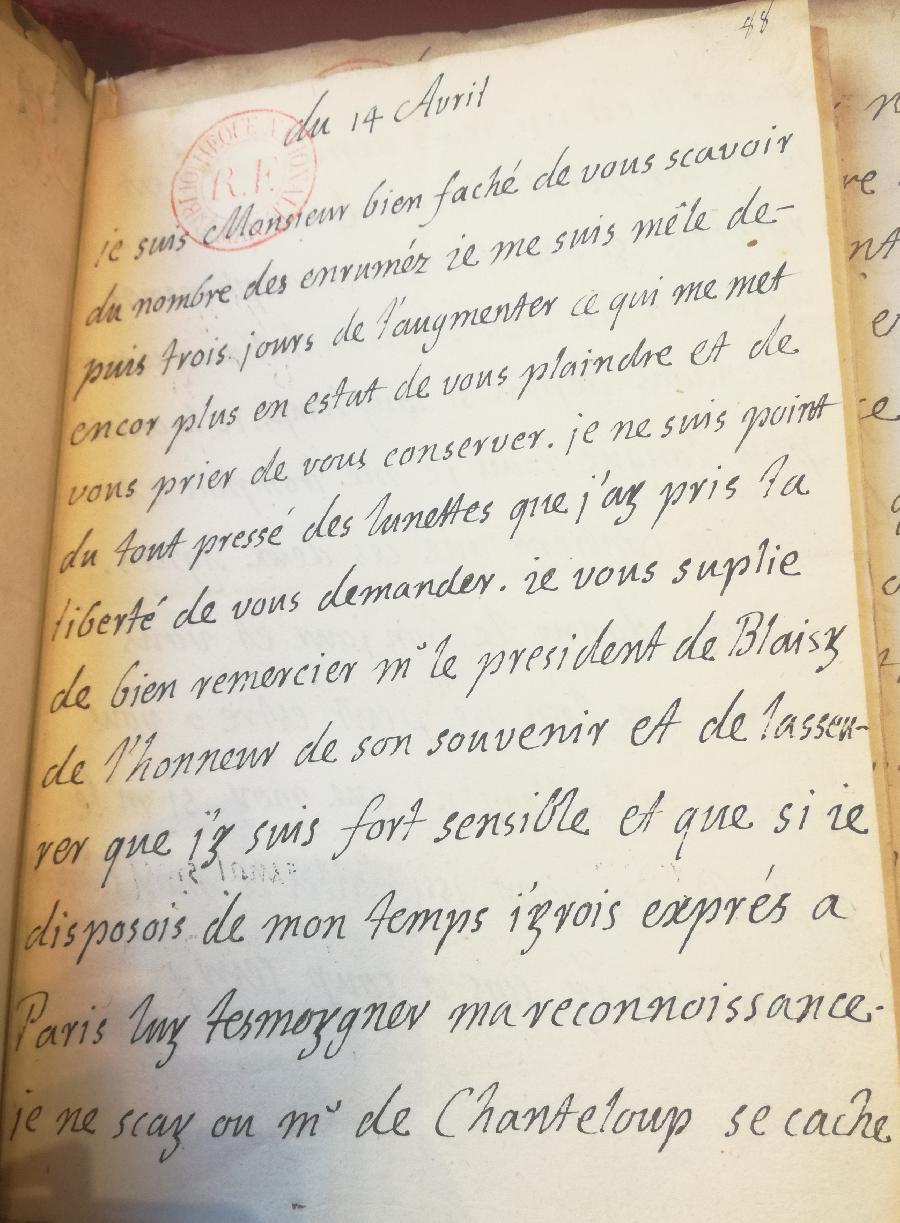 88
du 14 Avril
BIBLIOTHEQUE NATIONALE
R.F
ie suis Monsieur bien faché de vous scavoir
du nombre des enruméz ie me suis mêle de-
puis trois jours de l'augmenter ce qui me met
encor plus en estat de vous plaindre et de
vous prier de vous conserver. je ne suis point
du tout pressé des lunettes que j'ay pris la
liberté de vous demander. ie vous suplie
de bien remercier mr le president de Blaisy
de l'honneur de son souvenir et de lasseu-
rer que j'y suis fort sensible et que si ie
disposois de mon temps i'yrois exprés a
Paris luy tesmoygner ma reconnoissance.
je ne scay ou mr de Chanteloup se cache